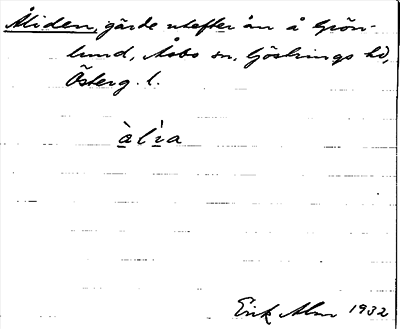 Åliden, gärde utefter ån å Grön-
lund, Åsbo sn, Göstrings hd,
Österg. l.
àlìa
Erik Alm 1932